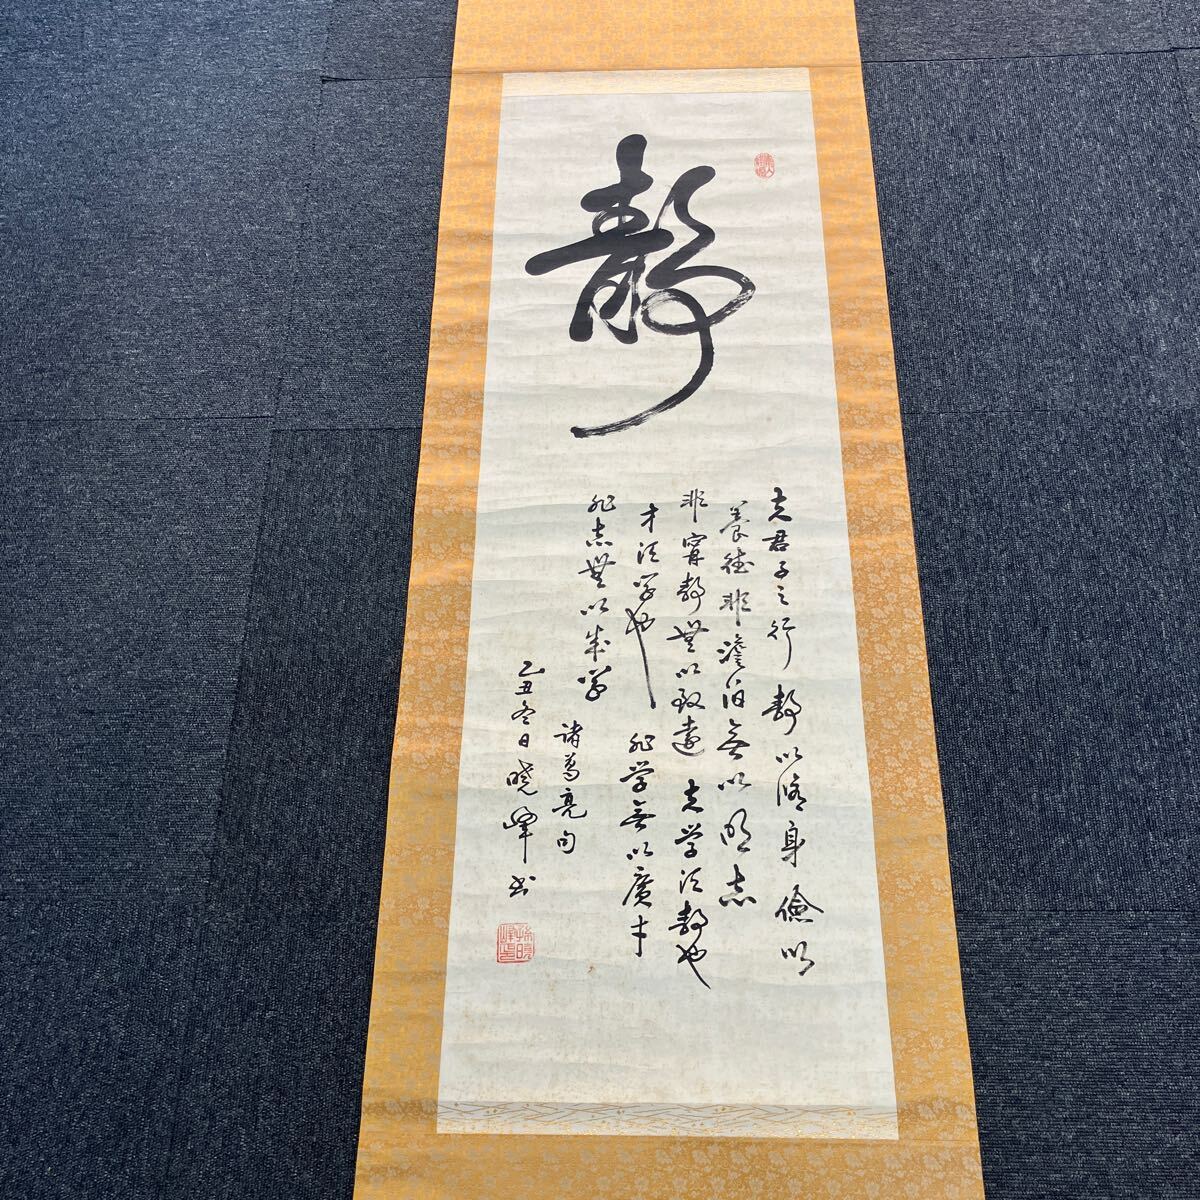 靜
夫君子之行 靜以脩身 儉以
養德 非澹泊無以明志
非寧靜無以致遠 夫学須靜也
才須学也 非学無以廣才
非志無以成学
諸葛亮句
乙丑冬日曉峰书
孫曉峰印